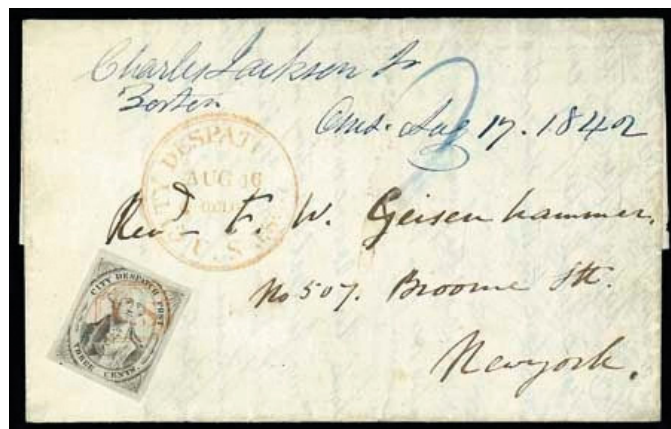 Charles Jackson Jr
Boston
Ansd. Aug 17. 1842
CITY DESPATCH
AUG 16
U.S
Revd F. W. Geisenhammer.
No 507. Broome Str.
Newyork.
CITY DESPATCH POST
U.S
THREE CENTS.